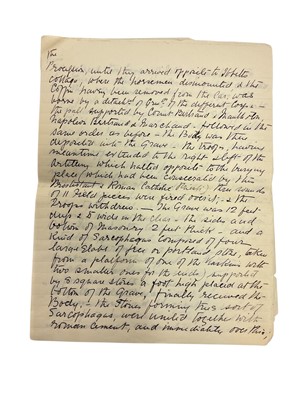 The
Procession, until they arrived opposite to Hibbetts
cottage, where the horsemen dismounted & the
Coffin having been removed from the Car, was
borne by a detacht of Grs of the different Corps -
the pall supported by Counts Bertrand & Montholon
Napoleon Bertrand & Marchand - followed in the
same order as before - the Body was then
deposited into the Grave - the troops, having
extended to the right & left of the
Artillery which halted opposite to the burying
place (which had been consecrated by the
Protestant & Roman Catholic Priests) three rounds
of 11 Field pieces were fired over it, & the
Troops withdrew - The Grave was 12 feet
deep & 5 wide in the Clear - the sides a
bottom of Masonry 2 feet thick - and a
kind of Sarcophagus composed of four
large Slabs of free or portland stone, taken
from a platform of one of the Batteries with
two smaller ones for the ends, supported
by 8 square stones a foot high placed at the
bottom of the Grave, finally received the
Body, - the Stones forming this sort of
Sarcophagus, were united together with
Roman cement, and immediately over this,